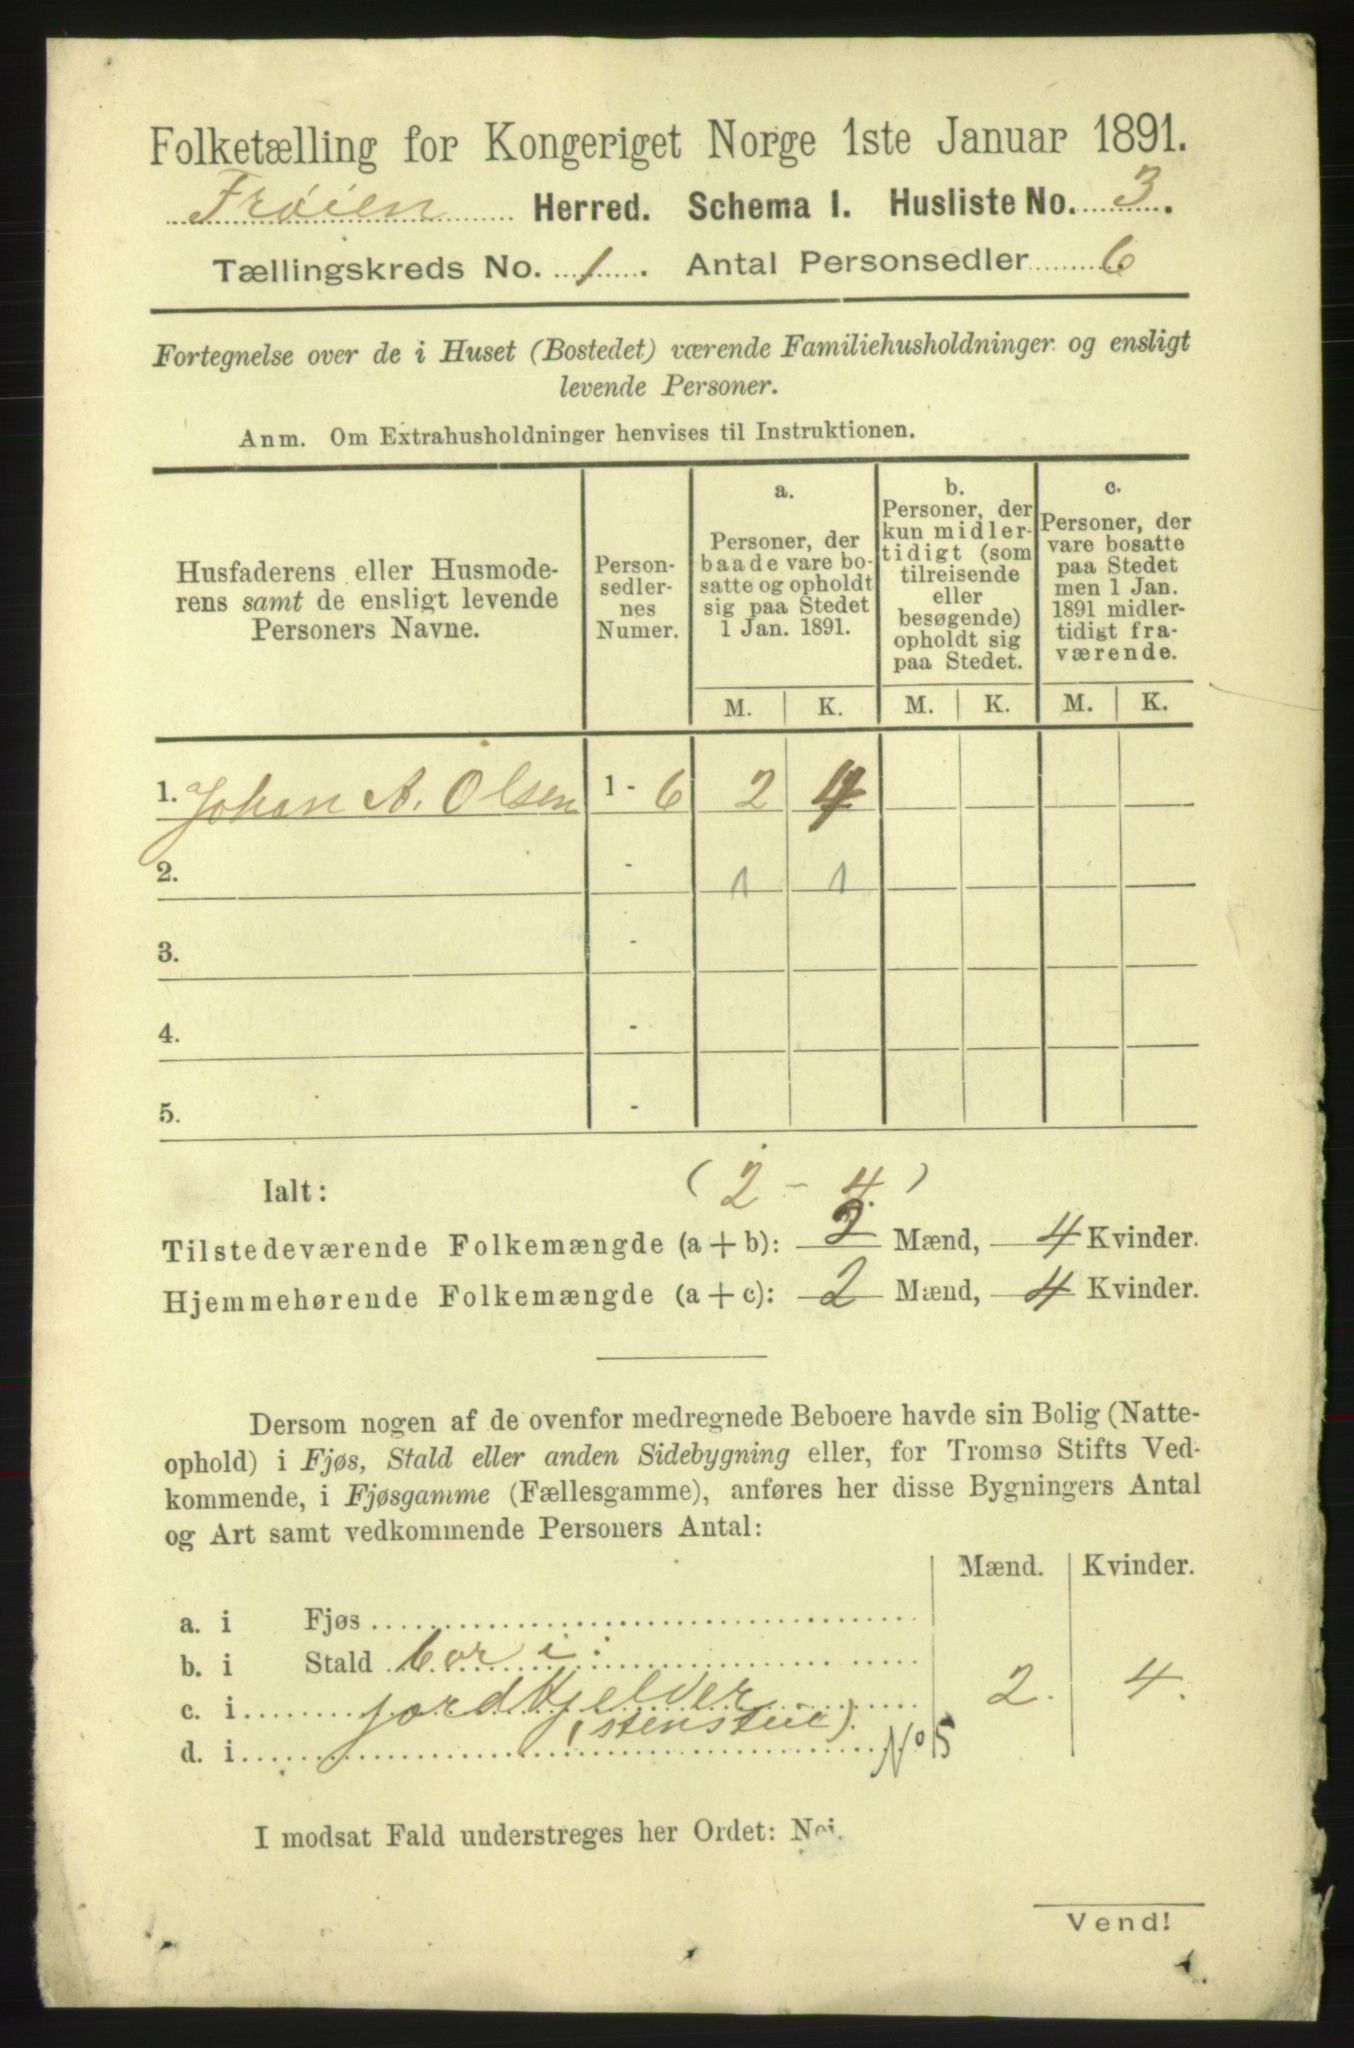 Folketælling for Kongeriget Norge 1ste Januar 1891.
Frøien Herred. Schema I. Husliste No. 3.
Tællingskreds No. 1. Antal Personsedler 6
Fortegnelse over de i Huset (Bostedet) værende Familiehusholdninger og ensligt
levende Personer.
Anm. Om Extrahusholdninger henvises til Instruktionen.
Husfaderens eller Husmode-
rens samt de ensligt levende
Personers Navne.
Person-
sedler-
nes
Numer.
a.
Personer, der
baade vare bo-
satte og opholdt
sig paa Stedet
1 Jan. 1891.
b.
Personer, der
kun midler-
tidigt (som
tilreisende
eller
besøgende)
opholdt sig
paa Stedet.
c.
Personer, der
vare bosatte
paa Stedet
men 1 Jan.
1891 midler-
tidigt fra-
værende.
M. K. M. K. M. K.
1. Johan A. Olsen 1 - 6 2 4
2. - 1 1
3. -
4. -
5. -
Ialt: (2 - 4.)
Tilstedeværende Folkemængde (a + b): 2 Mænd, 4 Kvinder.
Hjemmehørende Folkemængde (a + c): 2 Mænd, 4 Kvinder.
Dersom nogen af de ovenfor medregnede Beboere havde sin Bolig (Natte-
ophold) i Fjøs, Stald eller anden Sidebygning eller, for Tromsø Stifts Ved-
kommende, i Fjøsgamme (Fællesgamme), anføres her disse Bygningers Antal
og Art samt vedkommende Personers Antal:
Mænd. Kvinder.
a. i Fjøs
b. i Stald bor i:
c. i jordkjelder 2. 4.
(stenstue).
d. i No 5
I modsat Fald understreges her Ordet: Nei.
Vend!